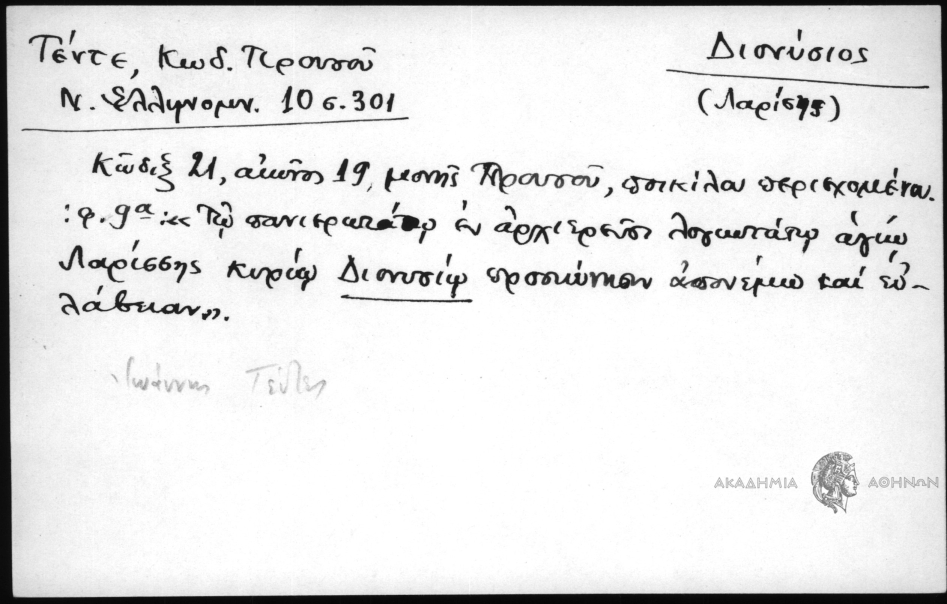 Τέντε, Κωδ. Προυσοῦ
Ν. Ἑλληνομν. 10 σ. 301
Διονύσιος
(Λαρίσης)
Κῶδιξ 21, αἰῶνος 19, μονῆς Προυσοῦ, ποικίλου περιεχομένου.
: φ. 9α : « Τῷ πανιερωτάτῳ ἐν ἀρχιερεῦσι λογιωτάτῳ ἁγίῳ
Λαρίσσης κυρίῳ Διονυσίῳ προσκύνησιν ἀπονέμω καί εὐ-
λάβειαν».
Ἰωάννης Τέντες
ΑΚΑΔΗΜΙΑ ΑΘΗΝΩΝ